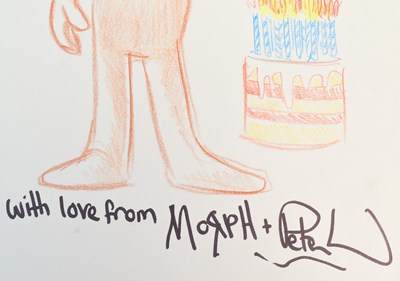 with love from MoЯPH + Peter L